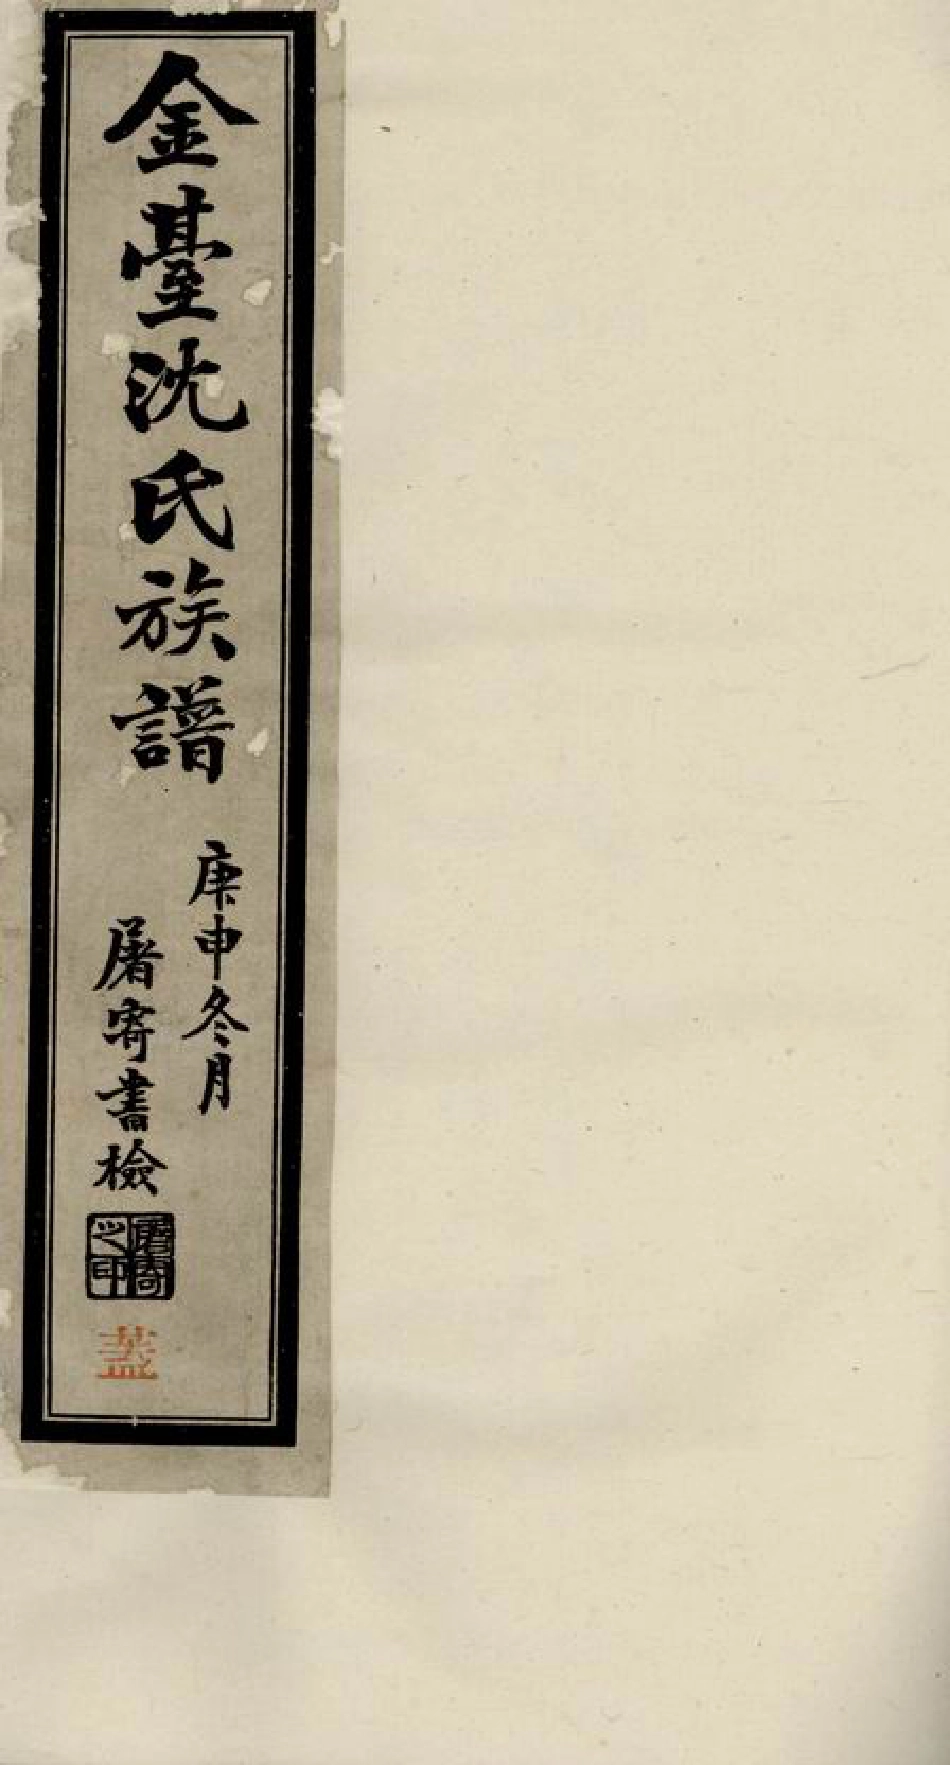 金臺沈氏族譜
庚申冬月
屠寄書檢
屠寄之印